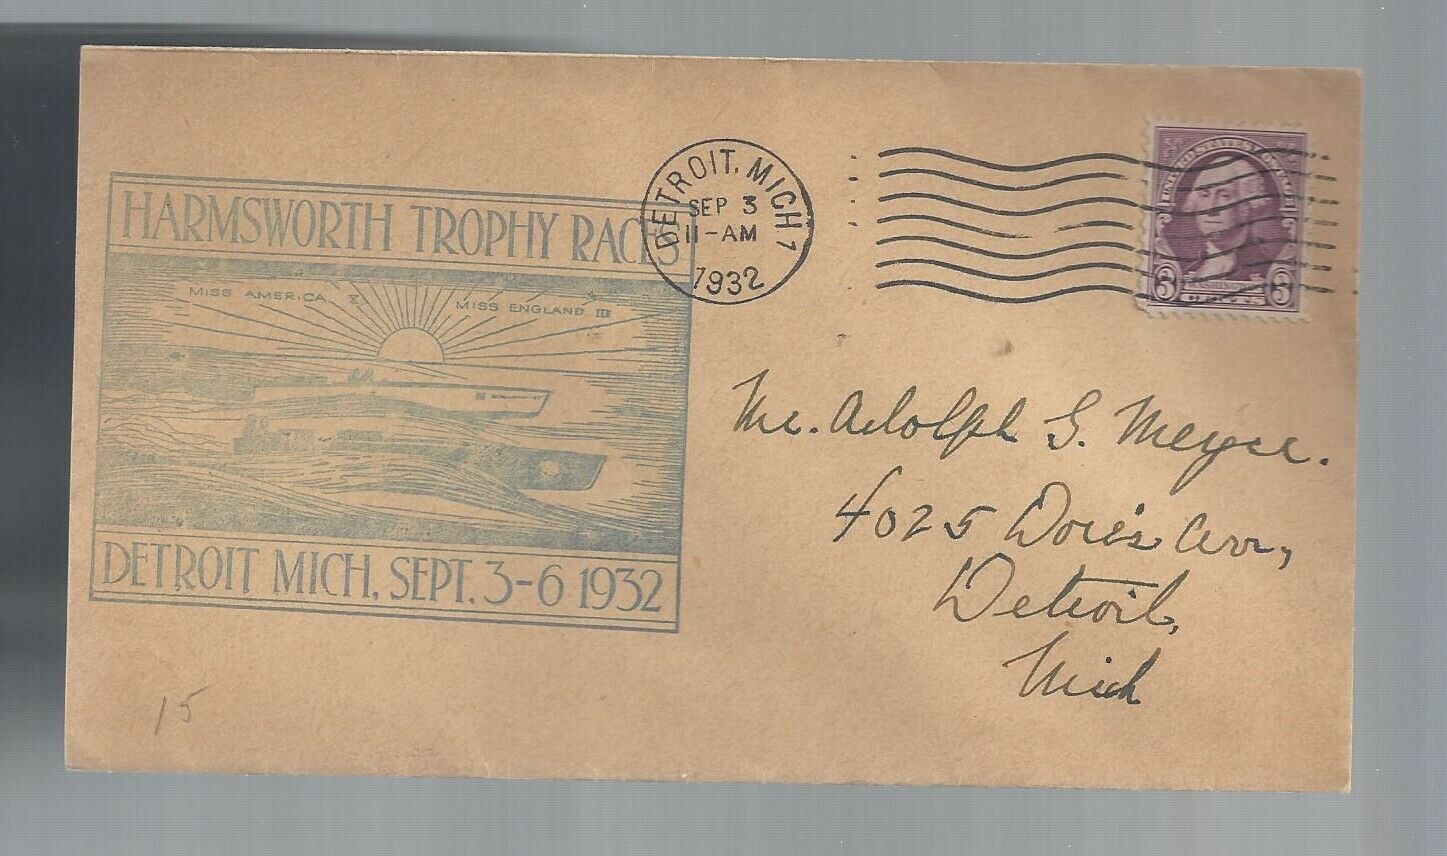 HARMSWORTH TROPHY RACES
MISS AMERICA X
MISS ENGLAND III
DETROIT MICH, SEPT. 3-6 1932
DETROIT, MICH 7
SEP 3
11-AM
1932
UNITED STATES POSTAGE
3 3
Mr. Adolph G. Meyer.
4025 Doris Ave,
Detroit,
Mich
15